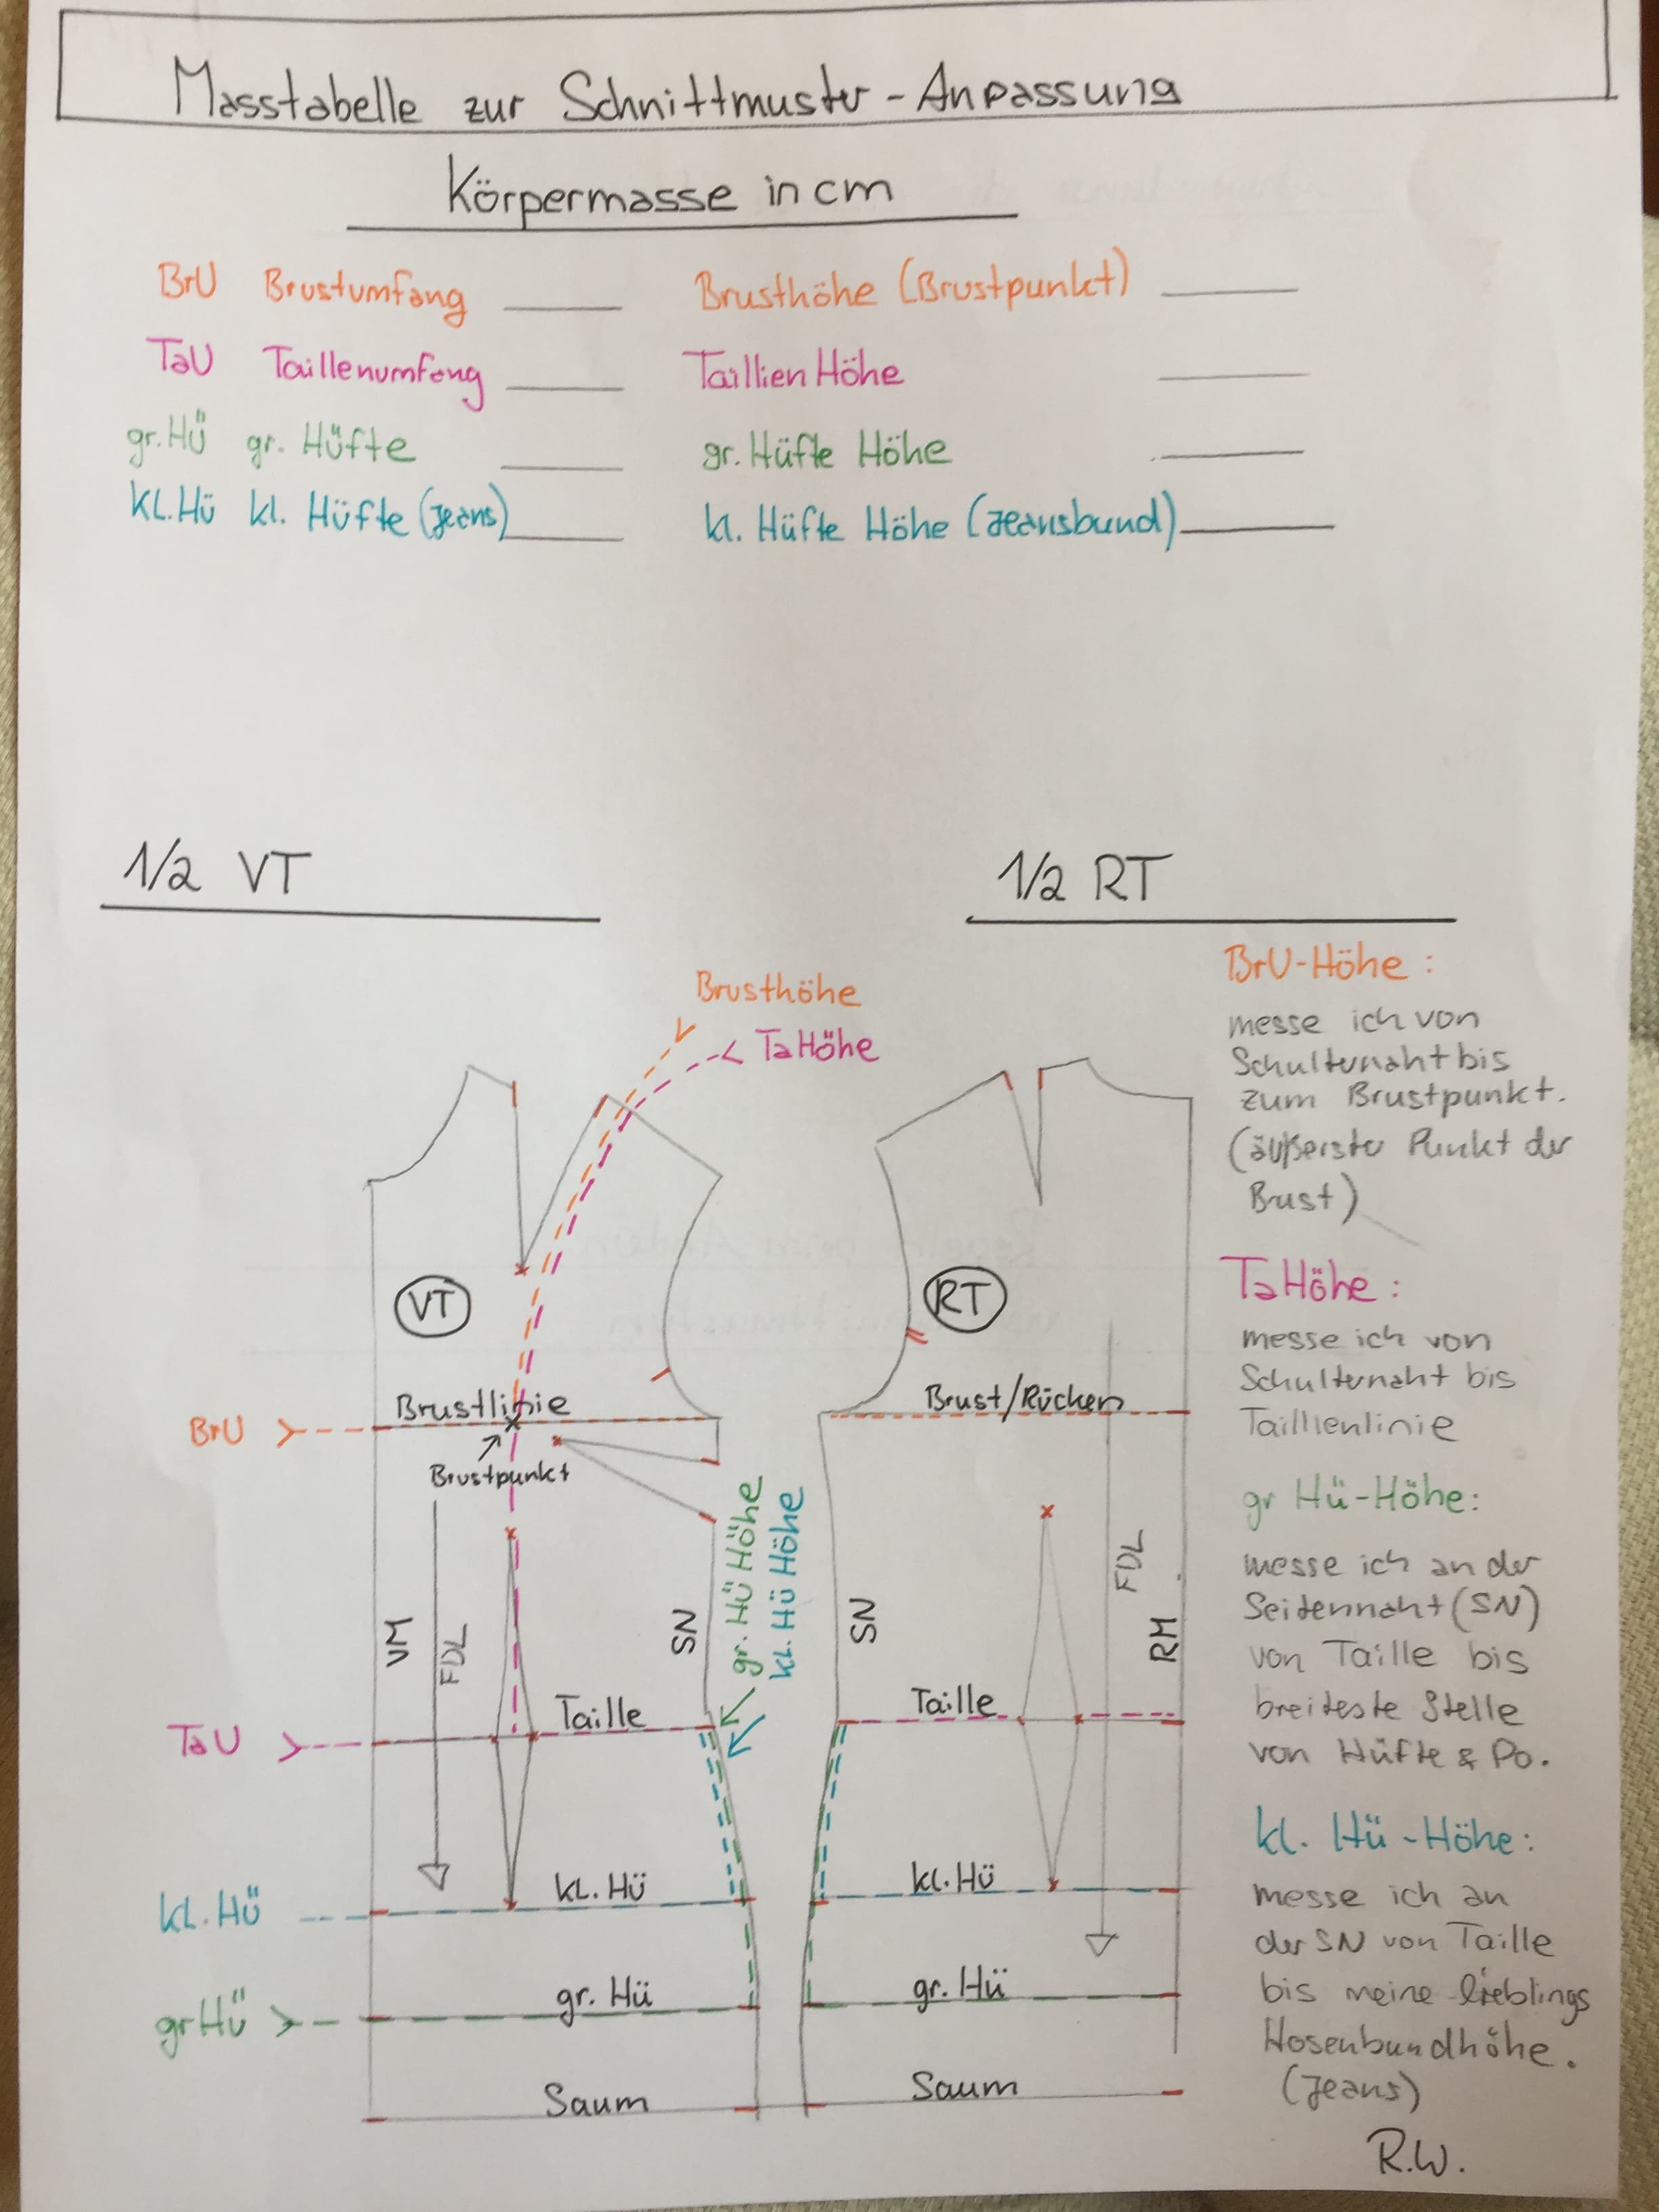 Masstabelle zur Schnittmuster-Anpassung
Körpermasse in cm
BrU Brustumfang Brusthöhe (Brustpunkt)
TaU Taillenumfang Taillien Höhe
gr.Hü gr. Hüfte gr. Hüfte Höhe
KL.Hü kl. Hüfte (Jeans) kl. Hüfte Höhe (Jeansbund)
1/2 VT
1/2 RT
Brusthöhe
TaHöhe
VT
BrU
Brustlinie
Brustpunkt
VM
FDL
SN
gr. Hü Höhe
kl. Hü Höhe
TaU
Taille
kl. Hü
KL. Hü
gr Hü
gr. Hü
Saum
RT
Brust/Rücken
SN
FDL
RM
Taille
kl. Hü
gr. Hü
Saum
BrU-Höhe:
messe ich von
Schulternaht bis
zum Brustpunkt.
(äußerster Punkt der
Brust)
TaHöhe:
messe ich von
Schulternaht bis
Taillienlinie
gr Hü-Höhe:
messe ich an der
Seitennaht (SN)
von Taille bis
breiteste Stelle
von Hüfte & Po.
kl. Hü-Höhe:
messe ich an
der SN von Taille
bis meine lieblings
Hosenbundhöhe.
(Jeans)
R.W.